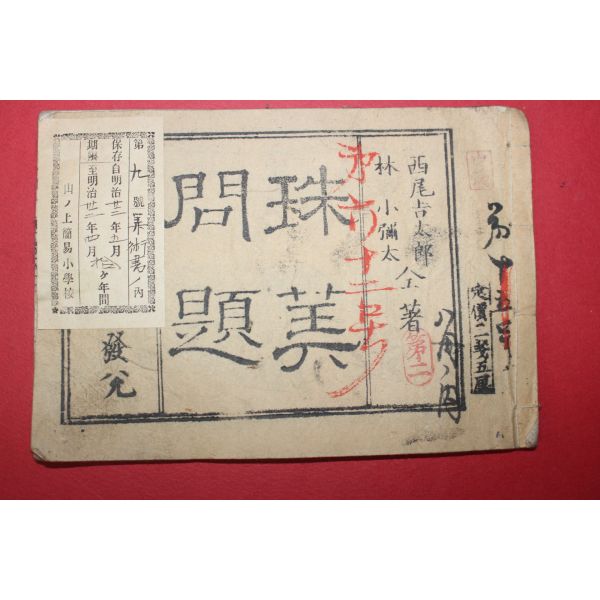 西尾吉太郎
林小彌太
仝著
珠算
問題
發兌
定價二銭五厘
第十五号
第二
第九號算術書ノ内
保存自明治廿二年五月
期限至明治廿二年四月拾ケ年間
山ノ上簡易小學校